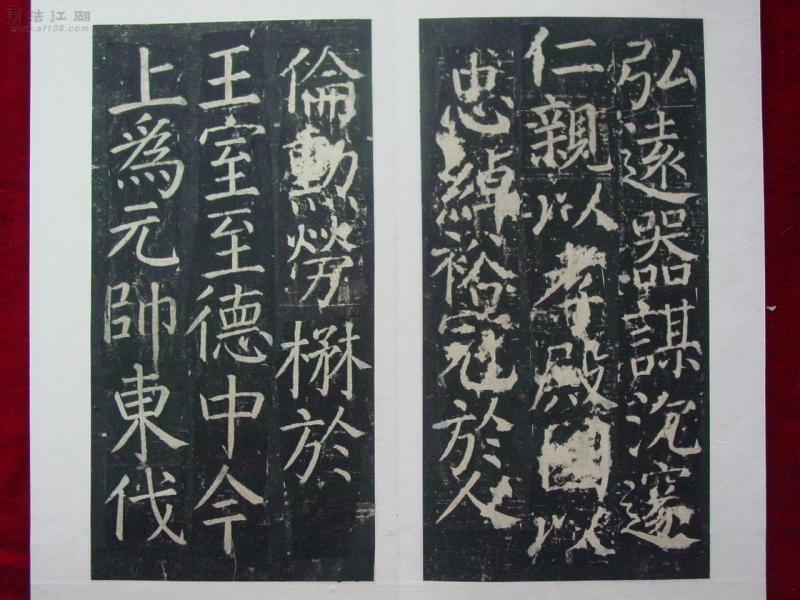 弘遠器謀沉邃
仁親以孝殿國以
忠綽裕冠於人
倫勳勞楙於
王室至德中今
上為元帥東伐
書法江湖
www.sf108.com